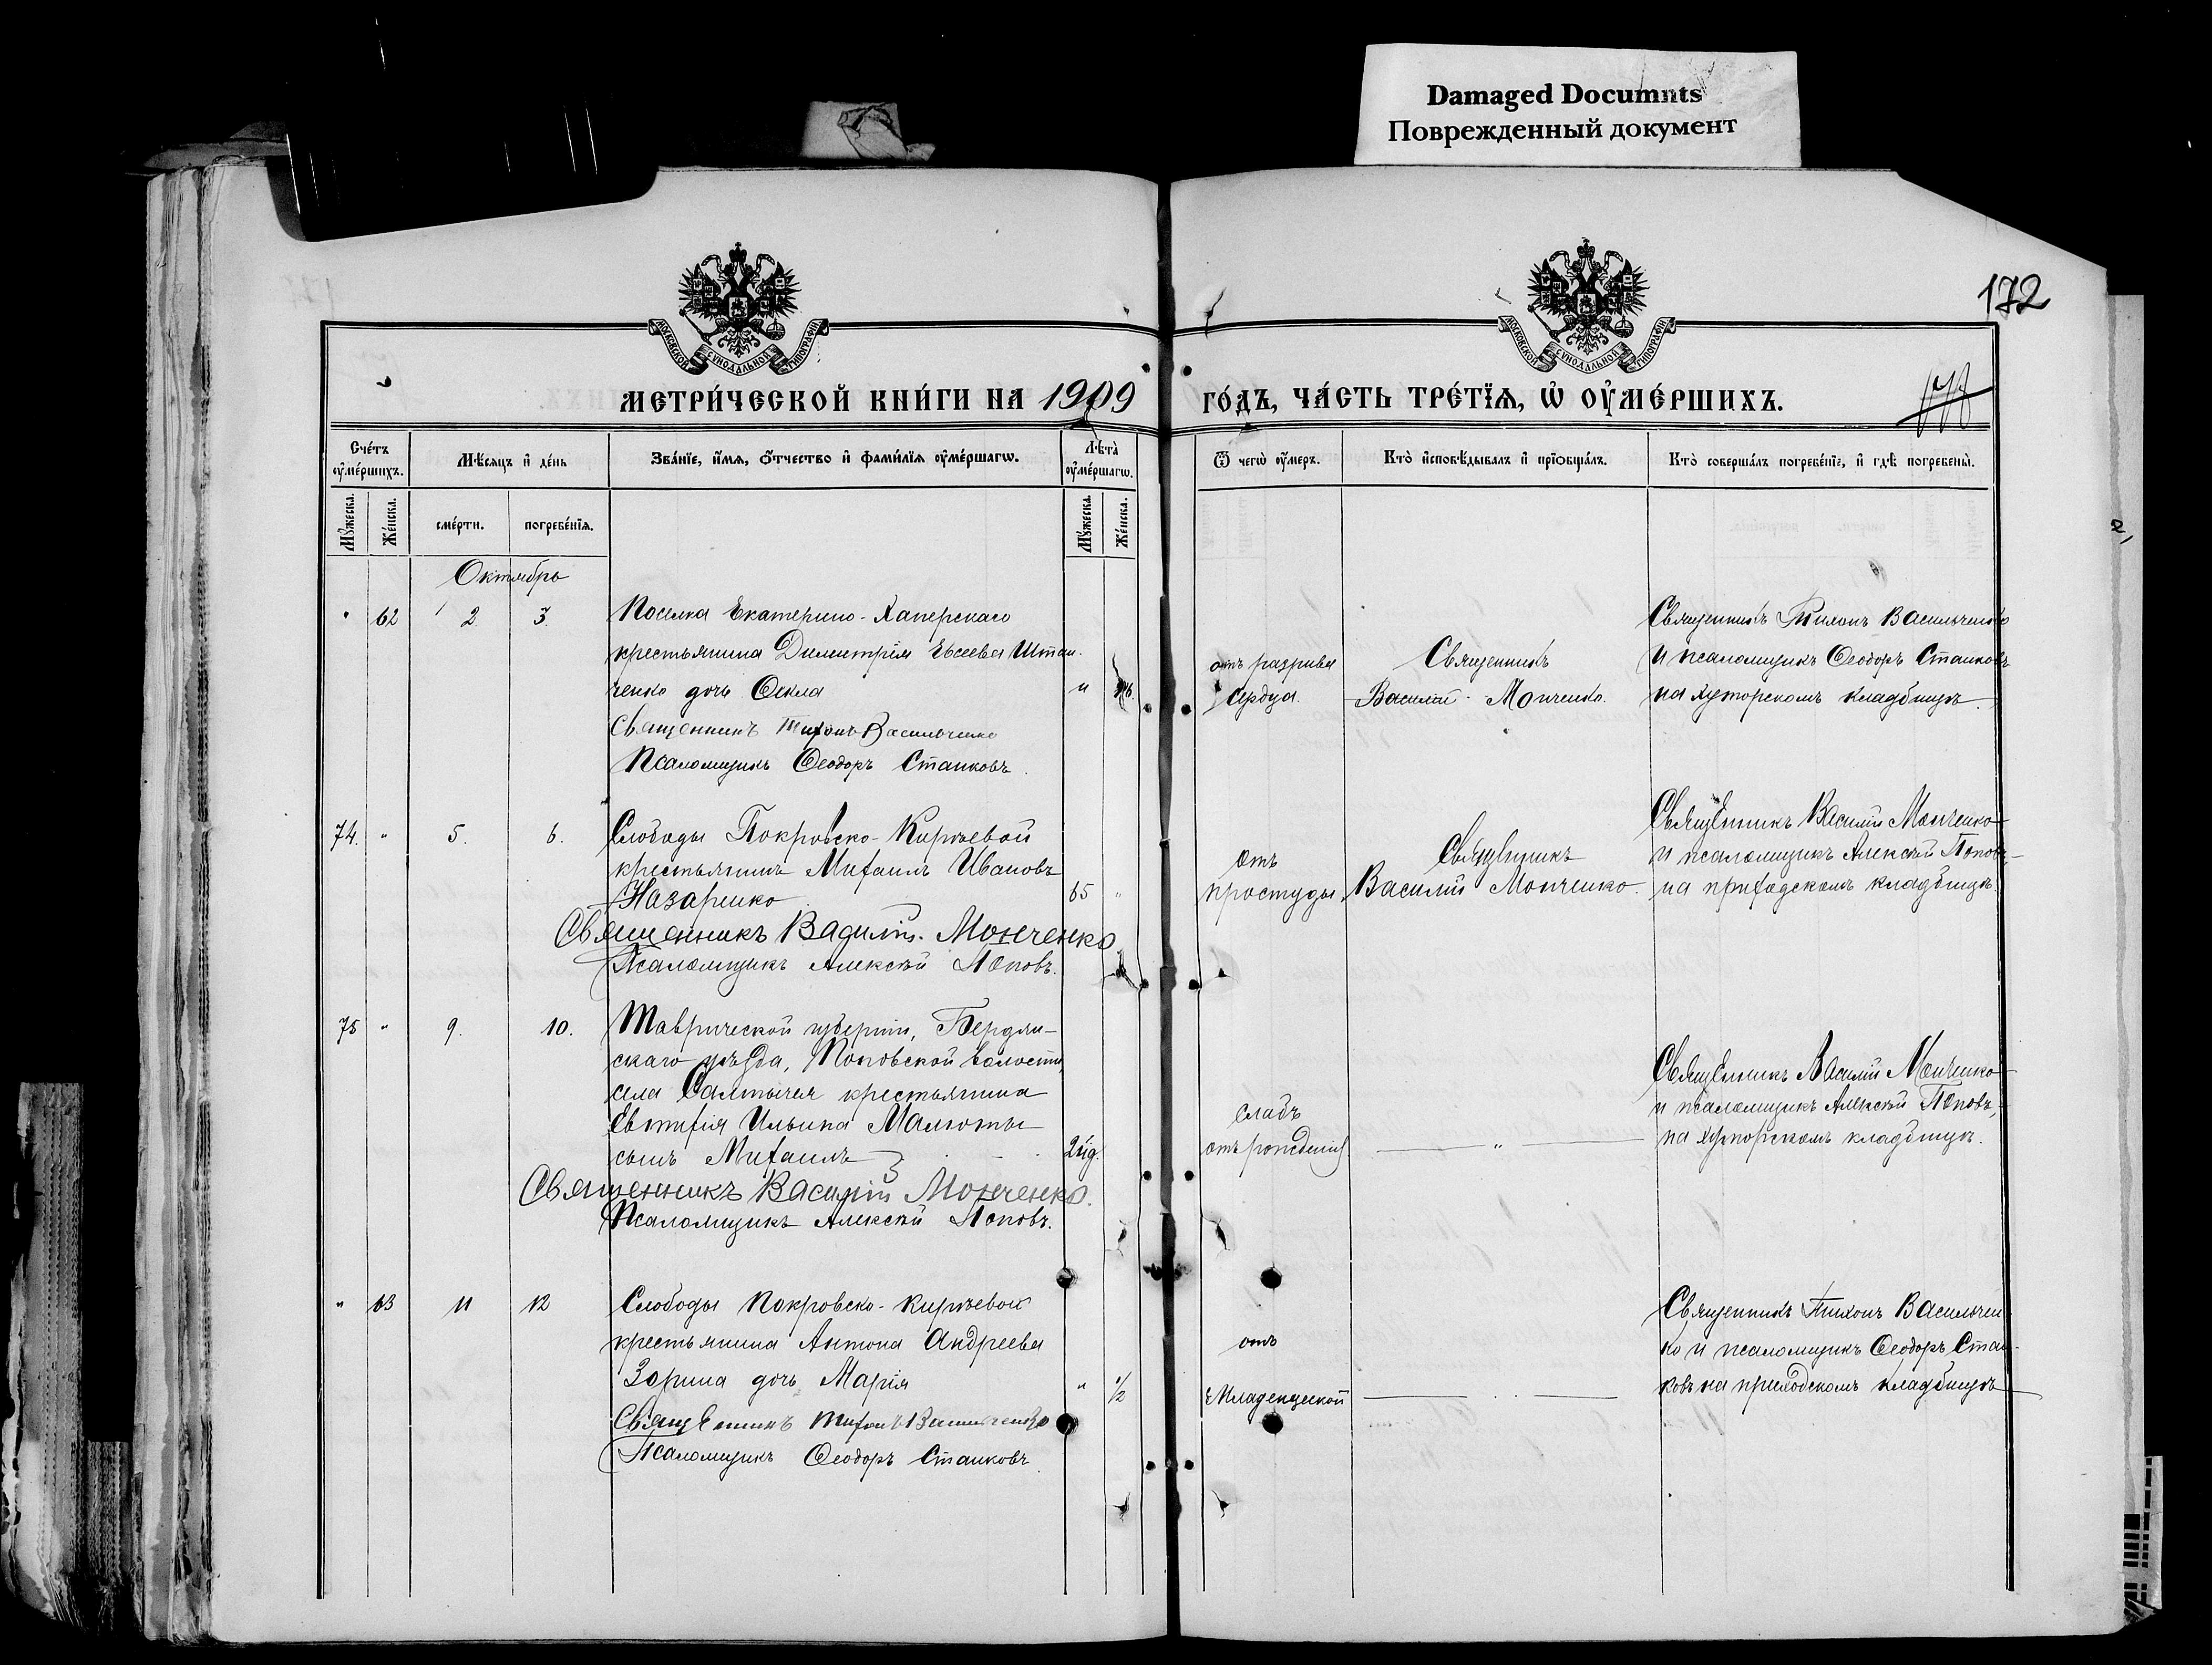 Damaged Documnts
Поврежденный документ
172
МОСКОВСКОЙ СѴНОДАЛЬНОЙ ТИПОГРАФІИ
МОСКОВСКОЙ СѴНОДАЛЬНОЙ ТИПОГРАФІИ
МЕТРИ́ЧЕСКОЙ КНИ́ГИ НА 1909
ГО́ДЪ, ЧА́СТЬ ТРЕ́ТЇѦ, Ѽ ОУ҆МЕ́РШИХЪ.
Сче́тъ оу҆ме́ршихъ.
Мѣ́сяцъ и҆ де́нь
Зва́нїе, и҆́мѧ, ѻ҆́тчество и҆ фами́лїѧ оу҆ме́ршагѡ.
Лѣта̀ оу҆ме́ршагѡ.
Ѿ чегѡ̀ оу҆́меръ.
Кто̀ и҆сповѣ́дывалъ и҆ прїѡбща́лъ.
Кто̀ соверша́лъ погребе́нїе, и҆ гдѣ̀ погребены̀.
Мꙋ́жеска.
Же́нска.
сме́рти.
погребе́нїѧ.
Мꙋ́жеска.
Же́нска.
Октябрь
" 62 2 3.
Поселка Екатерино-Хаперскаго
крестьянина Димитрія Евсеева Штан-
ченко дочь Ѳекла
Священникъ Тихонъ Васильченко
Псаломщикъ Ѳеодоръ Станковъ.
отъ разрыва
сердца.
Священникъ
Василій Мончепко.
Священникъ Тихонъ Васильченко
и псаломщикъ Ѳеодоръ Станковъ
на хуторскомъ кладбищѣ.
74. " 5. 6.
Слободы Покровско-Киреевой
крестьянинъ Михаилъ Ивановъ
Назаренко 65 "
Священникъ Василій Монченко
Псаломщикъ Алексѣй Поповъ.
отъ
простуды.
Священникъ
Василій Монченко.
Священникъ Василій Монченко
и псаломщикъ Алексѣй Поповъ
на приходскомъ кладбищѣ.
75 " 9. 10.
Таврической губерніи, Бердян-
скаго уѣзда, Поповской волости,
села Салтычея крестьянина
Евтихія Ильина Малюты
сынъ Михаилъ 2 нд.
Священникъ Василій Монченко.
Псаломщикъ Алексѣй Поповъ.
слабъ
отъ рожденія
"
Священникъ Василій Монченко
и псаломщикъ Алексѣй Поповъ,
на хуторскомъ кладбищѣ.
" 63 11 12
Слободы Покровско-Киреевой
крестьянина Антона Андреева
Зорина дочь Марія " 1/2
Священникъ Тихонъ Васильченко
Псаломщикъ Ѳеодоръ Станковъ.
отъ
младенческой
Священникъ Тихонъ Васильчен-
ко и псаломщикъ Ѳеодоръ Стан-
ковъ на приходскомъ кладбищѣ